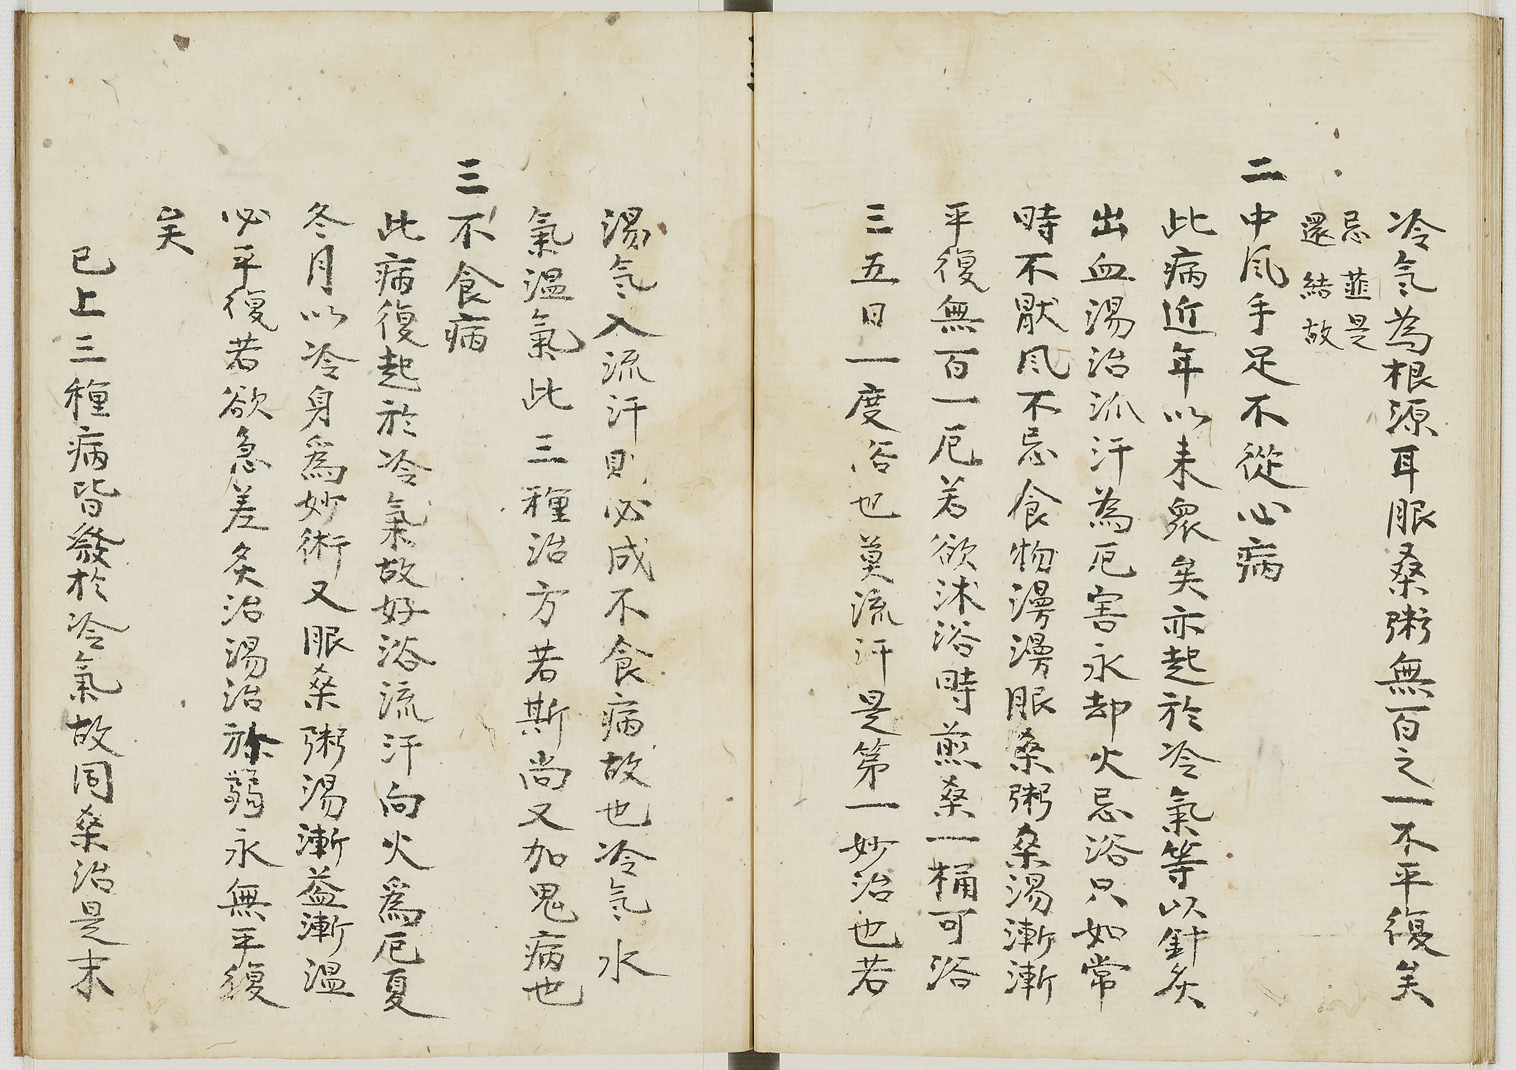 冷气為根源耳服桑粥無百之一不平復矣
忌韮是
還結故
二中風手足不從心病
此病近年以来衆矣亦起於冷氣等以針灸
出血湯治流汗為厄害永却火忌浴只如常
時不猒風不忌食物漫漫服桑粥桑湯漸漸
平復無百一厄若欲沐浴時煎桑一桶可浴
三五日一度浴也莫流汗是第一妙治也若
湯气入流汗則必成不食病故也冷气水
氣温氣此三種治方若斯尚又加鬼病也
三不食病
此病復起於冷氣故好浴流汗向火爲厄夏
冬月以冷身爲妙術又服桑粥湯漸益漸温
必平復若欲急差灸治湯治弥弱永無平復
矣
已上三種病皆發於冷氣故同桑治是末